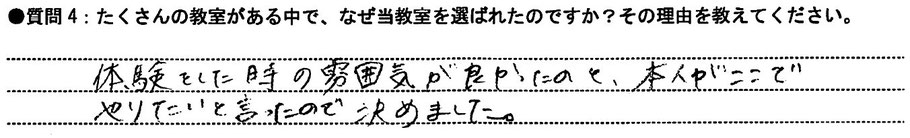 ●質問4：たくさんの教室がある中で、なぜ当教室を選ばれたのですか？その理由を教えてください。
体験をした時の雰囲気が良かったのと、本人がここで
やりたいと言ったので決めました。